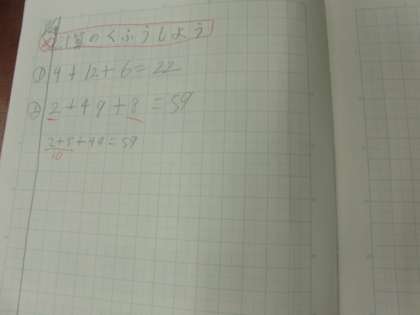 計算のくふうしよう
① 4+12+6=22
② 2+49+8=59
2+8+49=59
10